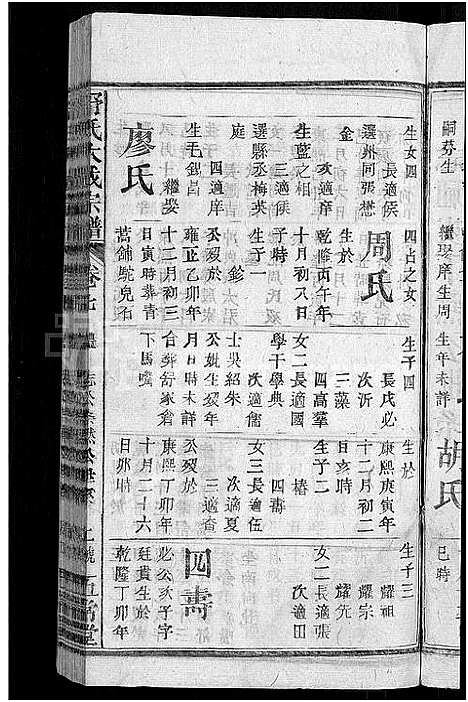 生女四
長適候
選州同張懋
金
次適庠
生藍之相
三適候
選縣丞梅英
庭
四適庠
生毛錫昌
繼娶
廖氏
四占之女
周氏
生於
乾隆丙午年
十月初八日
子時
生子一
鉁
公歿於
雍正乙卯年
十二月初三
日寅時葬青
蒿錦鴕兒石
生子四
長戌必
次沂
三藻
四高羣
女二長適國
學干學典
次適儒
士吳紹朱
公妣生歿年
月日時未詳
合葬舒家倉
下馬嘴
生於
康熙庚寅年
十二月初二
日亥時
生子二
椿
四壽
女三長適伍
次適夏
三適查
公歿於
康熙丁卯年
十月二十六
日卯時
生子三
耀祖
耀宗
耀先
女二長適張
次適田
四壽
必公次子字
廷貴生於
乾隆丁卯年
舒氏大成宗譜
卷七
嗣芬生
繼娶庠生周
生年未詳
胡氏
巳時